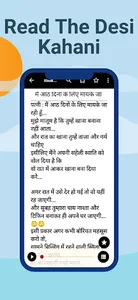 Read The Desi
Kahani
में आठ दिनों के लिए मायके जा
पत्नी : में आठ दिनो के लिए मायके जा
रही हूँ...
मुझे मालूम है कि तुम्हें खाना बनाना
नहीं आता...
और रात का खाना तुम्हें ताजा और गर्म
चाहिए
इसीलिए मैंने अपनी सहेली स्वाति को
बोल दिया है कि
वो रात में आकर खाना बना दिया
करे...
अगर रात में उसे देर हो गई तो वो यही
रह जाएगी...
और सुबह तुम्हारा चाय नाश्ता और
टिफिन बनाकर ही अपने घर जाएगी...
इसी प्रकार अगर कभी बोरियत महसूस
करो तो,